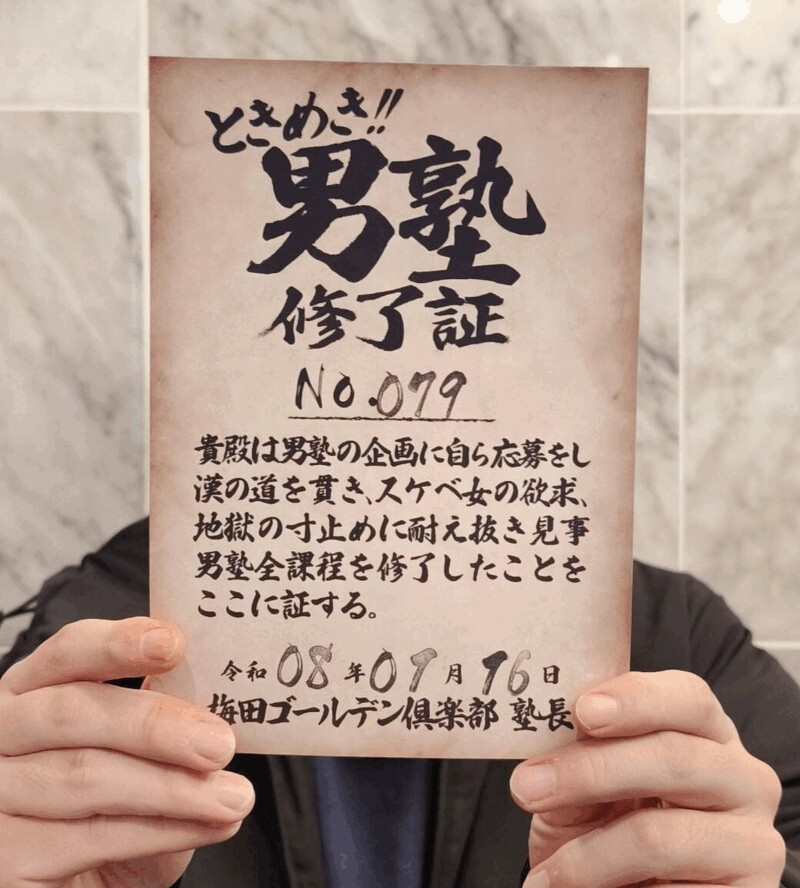 ときめき!!
男塾
修了証
No.079
貴殿は男塾の企画に自ら応募をし
漢の道を貫き、スケベ女の欲求、
地獄の寸止めに耐え抜き見事
男塾全課程を修了したことを
ここに証する。
令和08年01月16日
梅田ゴールデン倶楽部 塾長